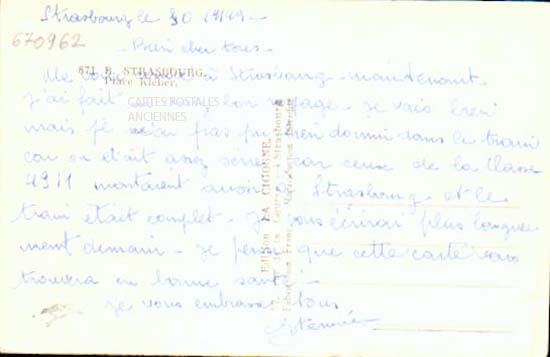 Strasbourg le 30
670962
Bien chers tous
871 B. STRASBOURG.
Place Kléber.
CARTES POSTALES
ANCIENNES
Me à Strasbourg maintenant
j'ai fait bon voyage. je vais bien
mais je n'ai pas pu bien dormi dans le train
car on était assez serré, car ceux de la classe
montaient aussi Strasbourg et le
train était complet. je vous écrirai plus longue
ment demain. je pense que cette carte vous
trouvera en bonne santé.
je vous embrasse tous
Edition LA CIGOGNE
Strasbourg
Fabrication Reproduction